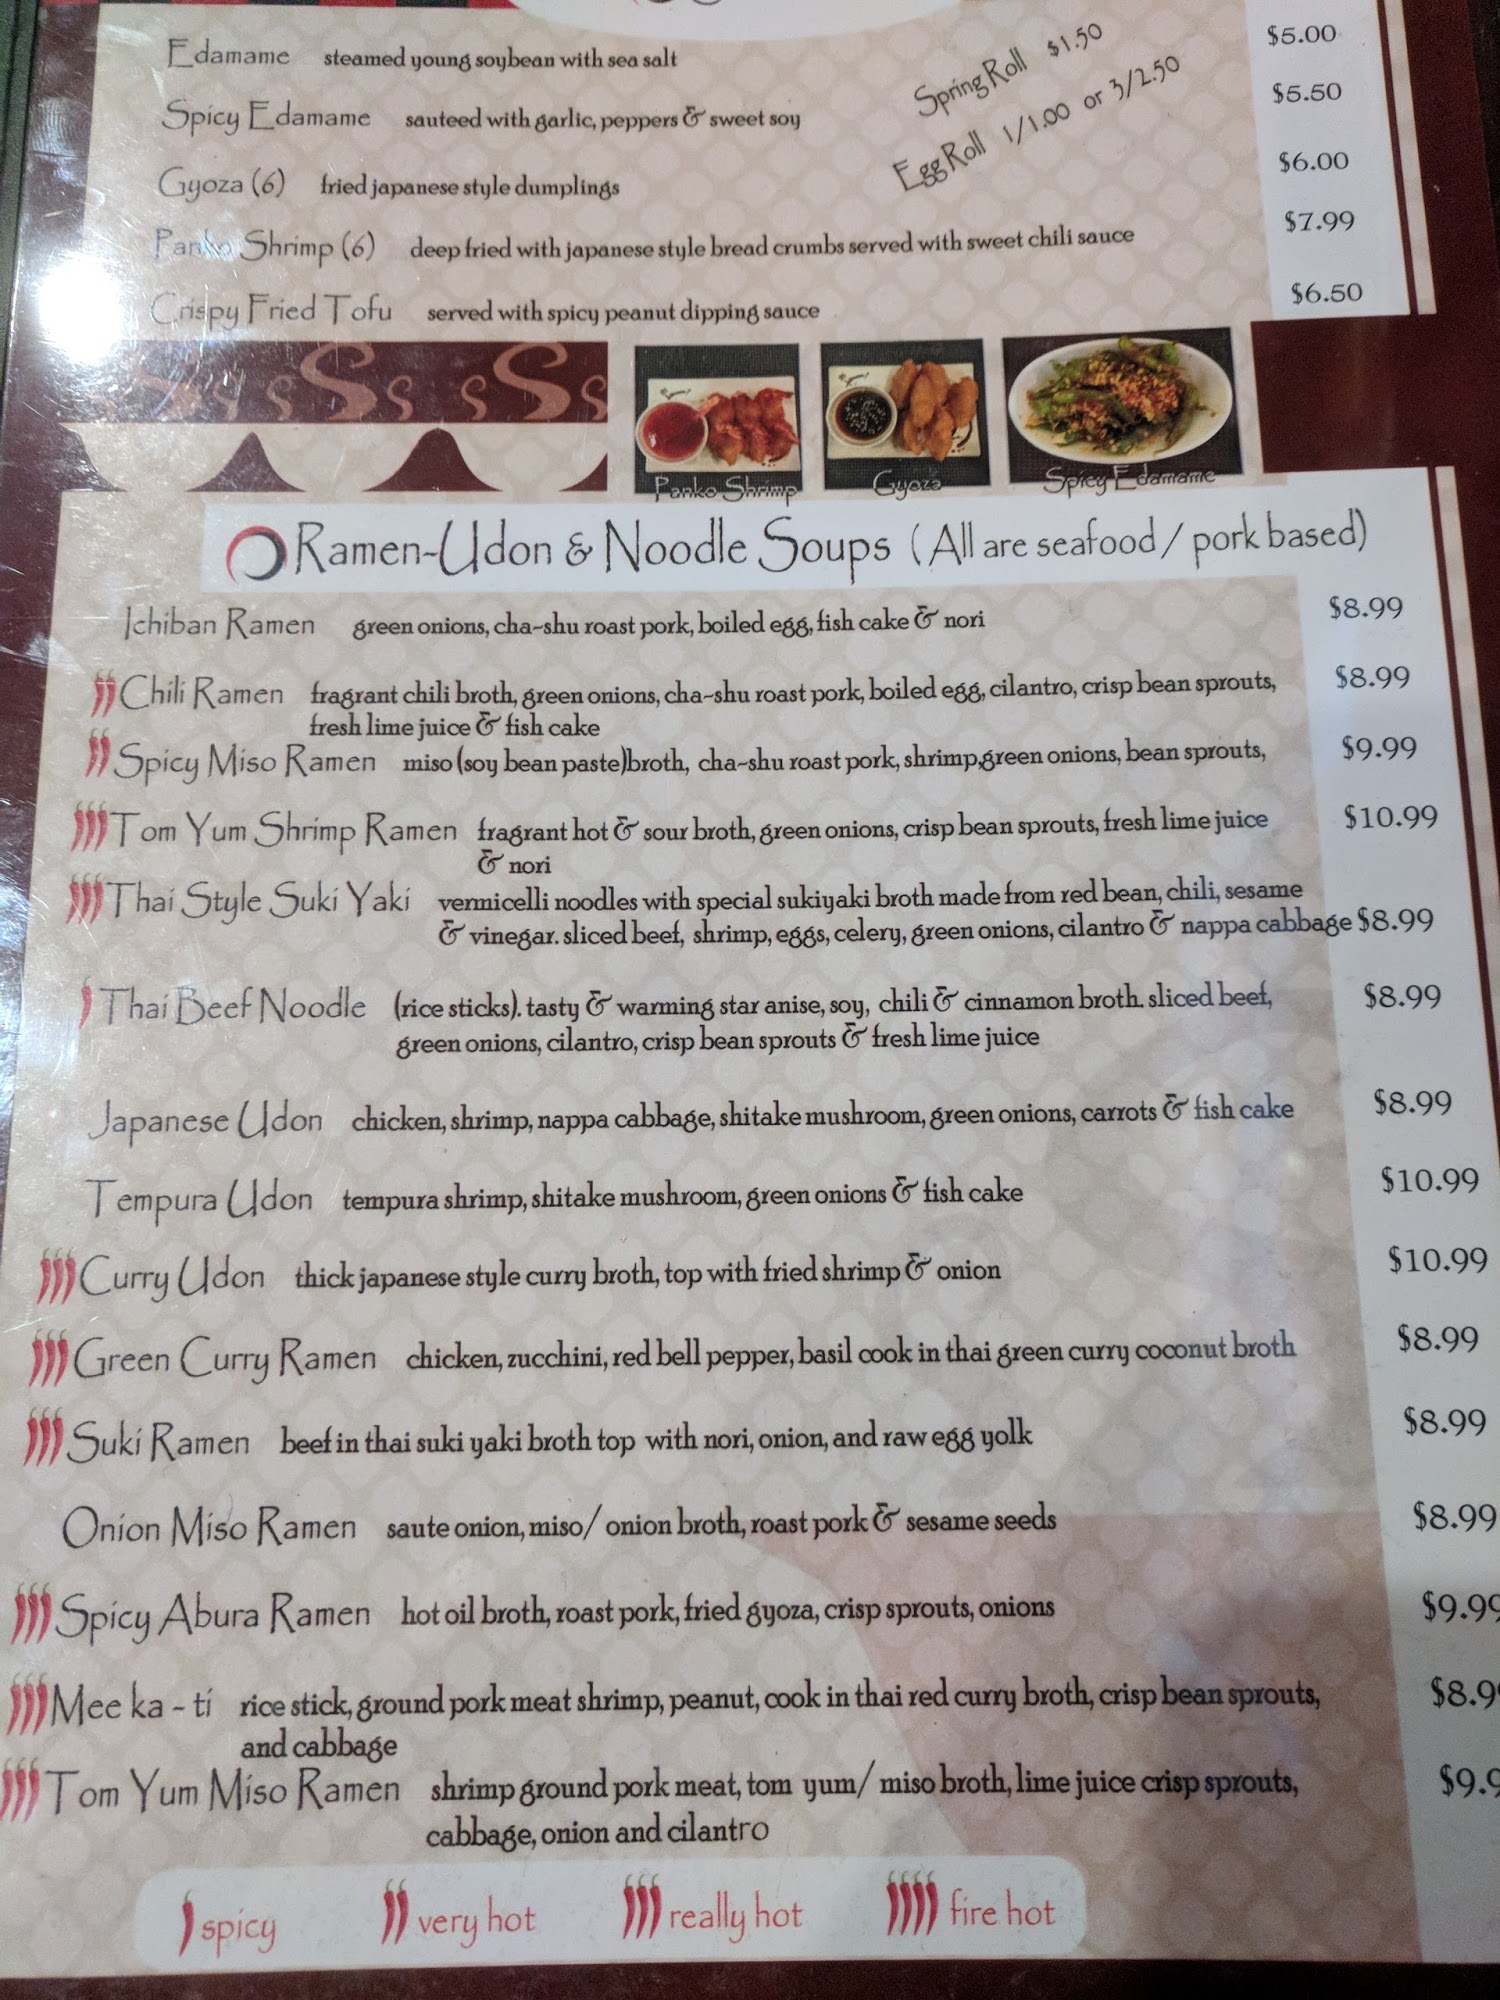 Edamame steamed young soybean with sea salt $5.00
Spring Roll $1.50
Spicy Edamame sauteed with garlic, peppers & sweet soy $5.50
Egg Roll 1/1.00 or 3/2.50
Gyoza (6) fried japanese style dumplings $6.00
Panko Shrimp (6) deep fried with japanese style bread crumbs served with sweet chili sauce $7.99
Crispy Fried Tofu served with spicy peanut dipping sauce $6.50
Panko Shrimp Gyoza Spicy Edamame
Ramen-Udon & Noodle Soups (All are seafood / pork based)
Ichiban Ramen green onions, cha-shu roast pork, boiled egg, fish cake & nori $8.99
Chili Ramen fragrant chili broth, green onions, cha-shu roast pork, boiled egg, cilantro, crisp bean sprouts, $8.99
fresh lime juice & fish cake
Spicy Miso Ramen miso (soy bean paste)broth, cha-shu roast pork, shrimp,green onions, bean sprouts, $9.99
Tom Yum Shrimp Ramen fragrant hot & sour broth, green onions, crisp bean sprouts, fresh lime juice $10.99
& nori
Thai Style Suki Yaki vermicelli noodles with special sukiyaki broth made from red bean, chili, sesame
& vinegar. sliced beef, shrimp, eggs, celery, green onions, cilantro & nappa cabbage $8.99
Thai Beef Noodle (rice sticks). tasty & warming star anise, soy, chili & cinnamon broth. sliced beef, $8.99
green onions, cilantro, crisp bean sprouts & fresh lime juice
Japanese Udon chicken, shrimp, nappa cabbage, shitake mushroom, green onions, carrots & fish cake $8.99
Tempura Udon tempura shrimp, shitake mushroom, green onions & fish cake $10.99
Curry Udon thick japanese style curry broth, top with fried shrimp & onion $10.99
Green Curry Ramen chicken, zucchini, red bell pepper, basil cook in thai green curry coconut broth $8.99
Suki Ramen beef in thai suki yaki broth top with nori, onion, and raw egg yolk $8.99
Onion Miso Ramen saute onion, miso/ onion broth, roast pork & sesame seeds $8.99
Spicy Abura Ramen hot oil broth, roast pork, fried gyoza, crisp sprouts, onions $9.99
Mee ka - ti rice stick, ground pork meat shrimp, peanut, cook in thai red curry broth, crisp bean sprouts, $8.9
and cabbage
Tom Yum Miso Ramen shrimp ground pork meat, tom yum/ miso broth, lime juice crisp sprouts, $9.9
cabbage, onion and cilantro
spicy very hot really hot fire hot